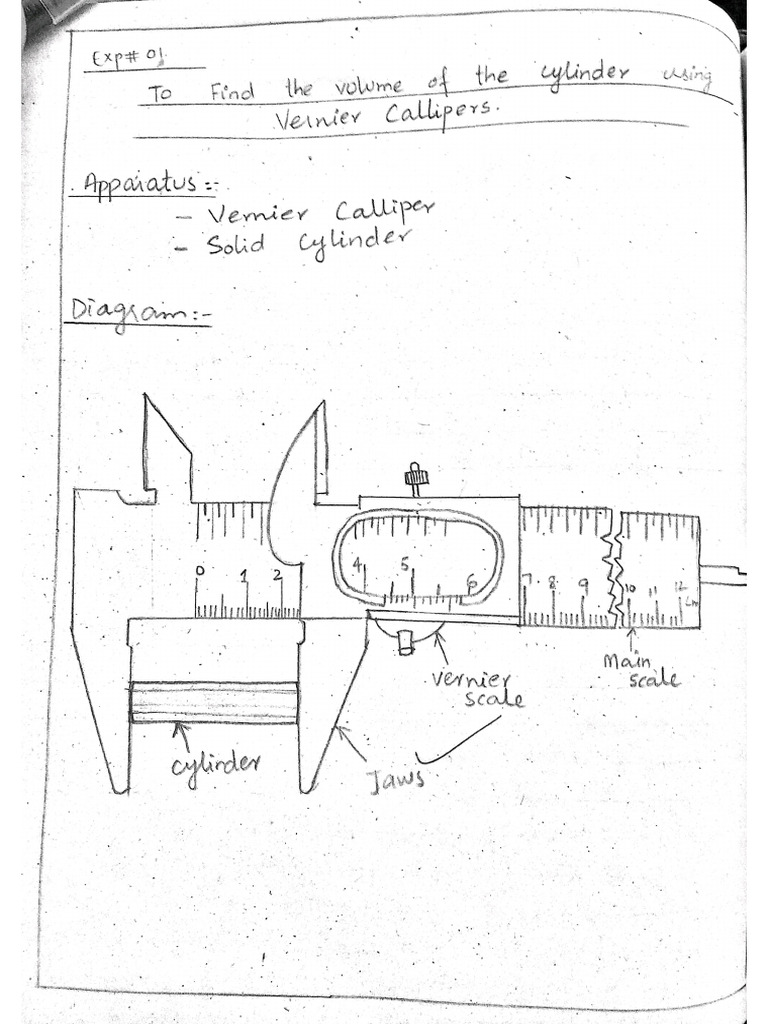 Exp# 01
To Find the volume of the cylinder using
Vernier Callipers.
Apparatus:-
- Vernier Calliper
- Solid Cylinder
Diagram:-
0 1 2
4 5 6
7 8 9 10 11 12
Cm
Main scale
Vernier scale
cylinder
Jaws